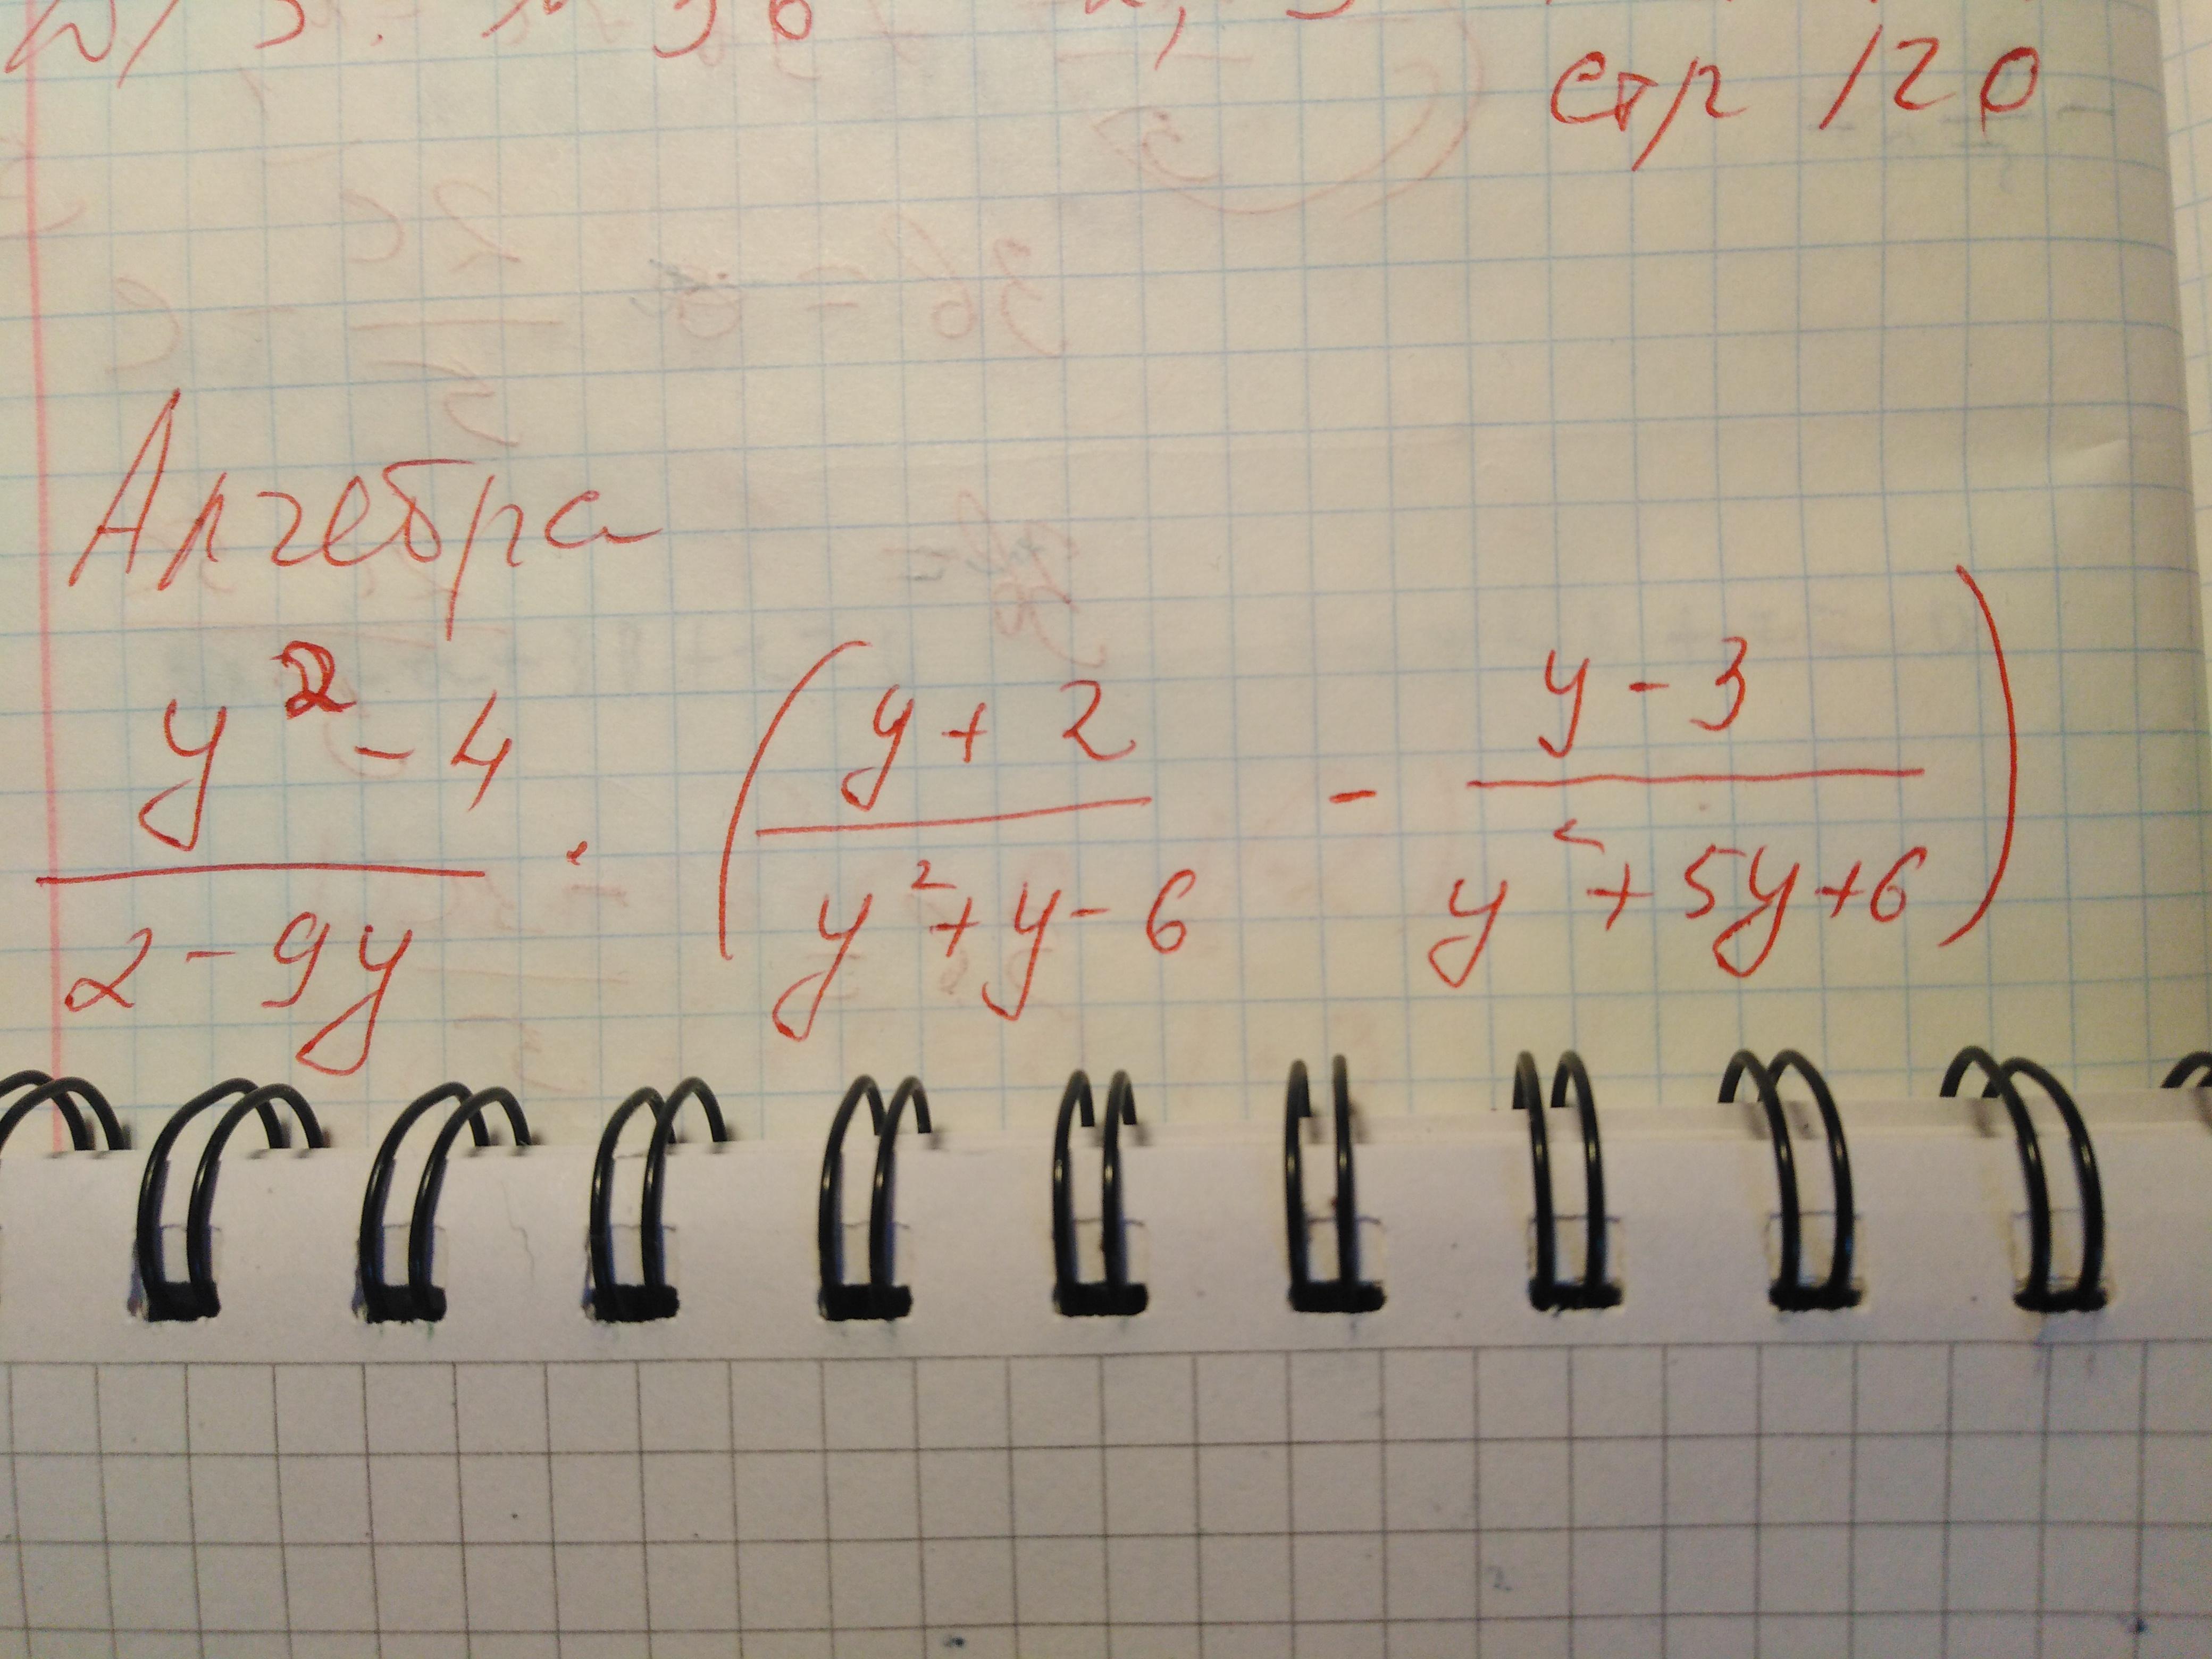 стр 120
Алгебра
y² - 4 / 2 - 9y · ( y + 2 / y² + y - 6 - y - 3 / y² + 5y + 6 )